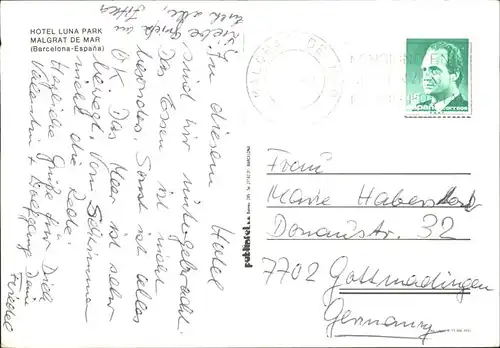 HOTEL LUNA PARK
MALGRAT DE MAR
(Barcelona-España)
In diesem Hotel
sind wir untergebracht.
Das Essen ist nicht
besonders. Sonst ist alles
OK. Das Meer ist sehr
bewegt. Vom Schwimmen
nicht die Rede
Herzliche Grüße für Dich
Valentin + Wolfgang Deine
Friedel
liebe Grüße an
Euch alle,
publintel s.a.
MALGRAT DE
ESPAÑA correos
Frau
Marie Haberstock
Donaustr. 32
7702 Gottmadingen
Germany